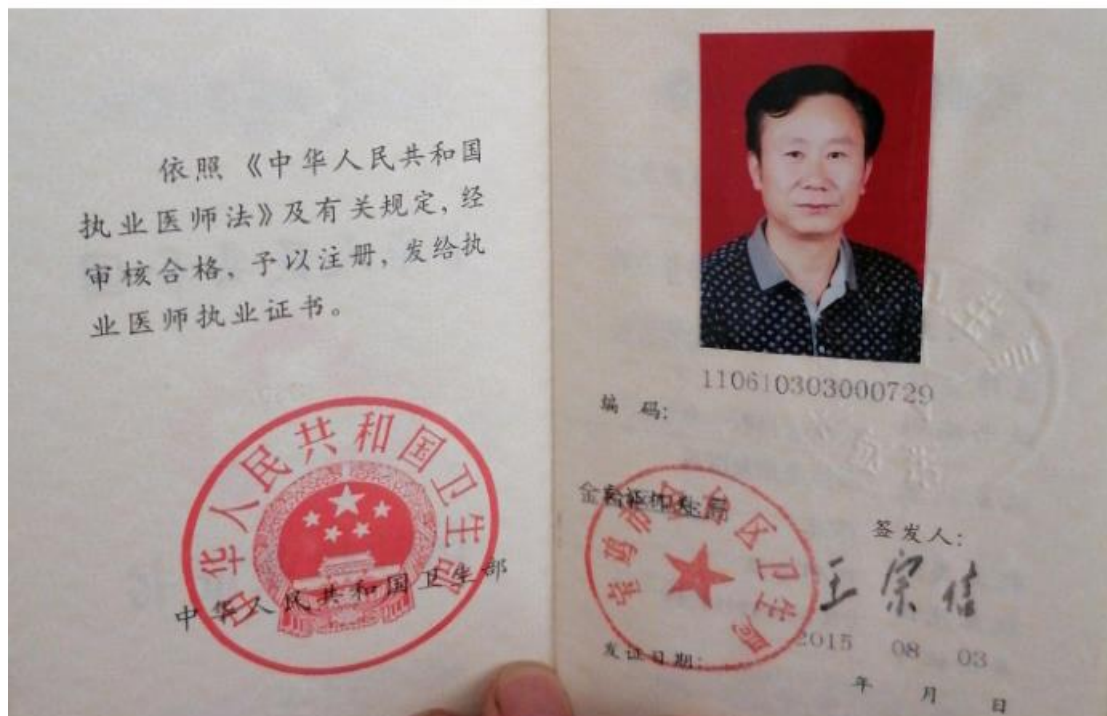 依照《中华人民共和国
执业医师法》及有关规定，经
审核合格，予以注册，发给执
业医师执业证书。
中华人民共和国卫生部
中华人民共和国卫生部
110610303000729
编 码：
金台区卫生局
签发人：
王宗信
2015 08 03
发证日期：
年 月 日